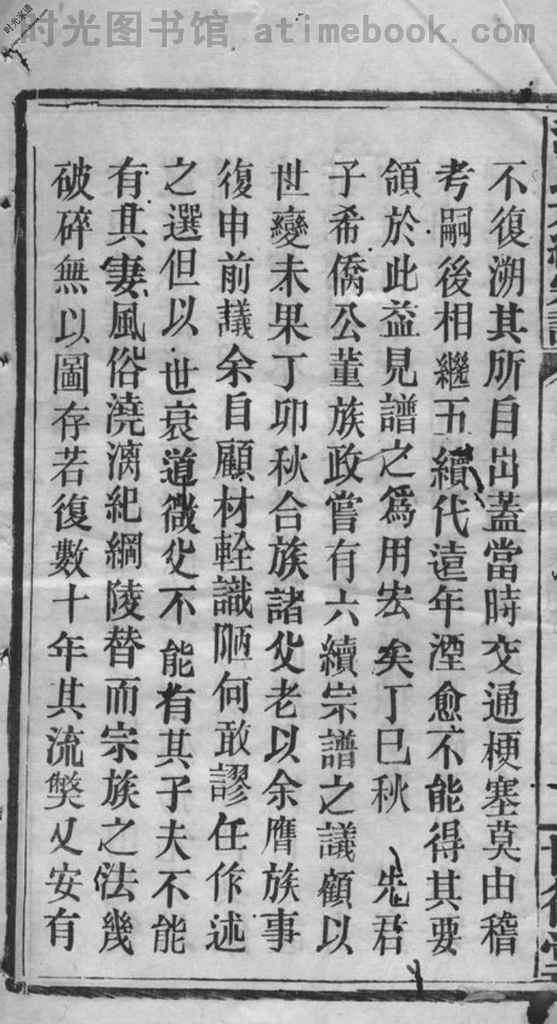 时光图书馆 atimebook.com
时光家谱
不復溯其所自出蓋當時交通梗塞莫由稽
考嗣後相繼五續代遠年湮愈不能得其要
領於此益見譜之爲用宏矣丁巳秋 先君
子希僑公董族政嘗有六續宗譜之議顧以
世變未果丁卯秋合族諸父老以余膺族事
復申前議余自顧材輇識陋何敢謬任作述
之選但以世衰道微父不能有其子夫不能
有其妻風俗澆漓紀綱陵替而宗族之法幾
破碎無以圖存若復數十年其流弊又安有